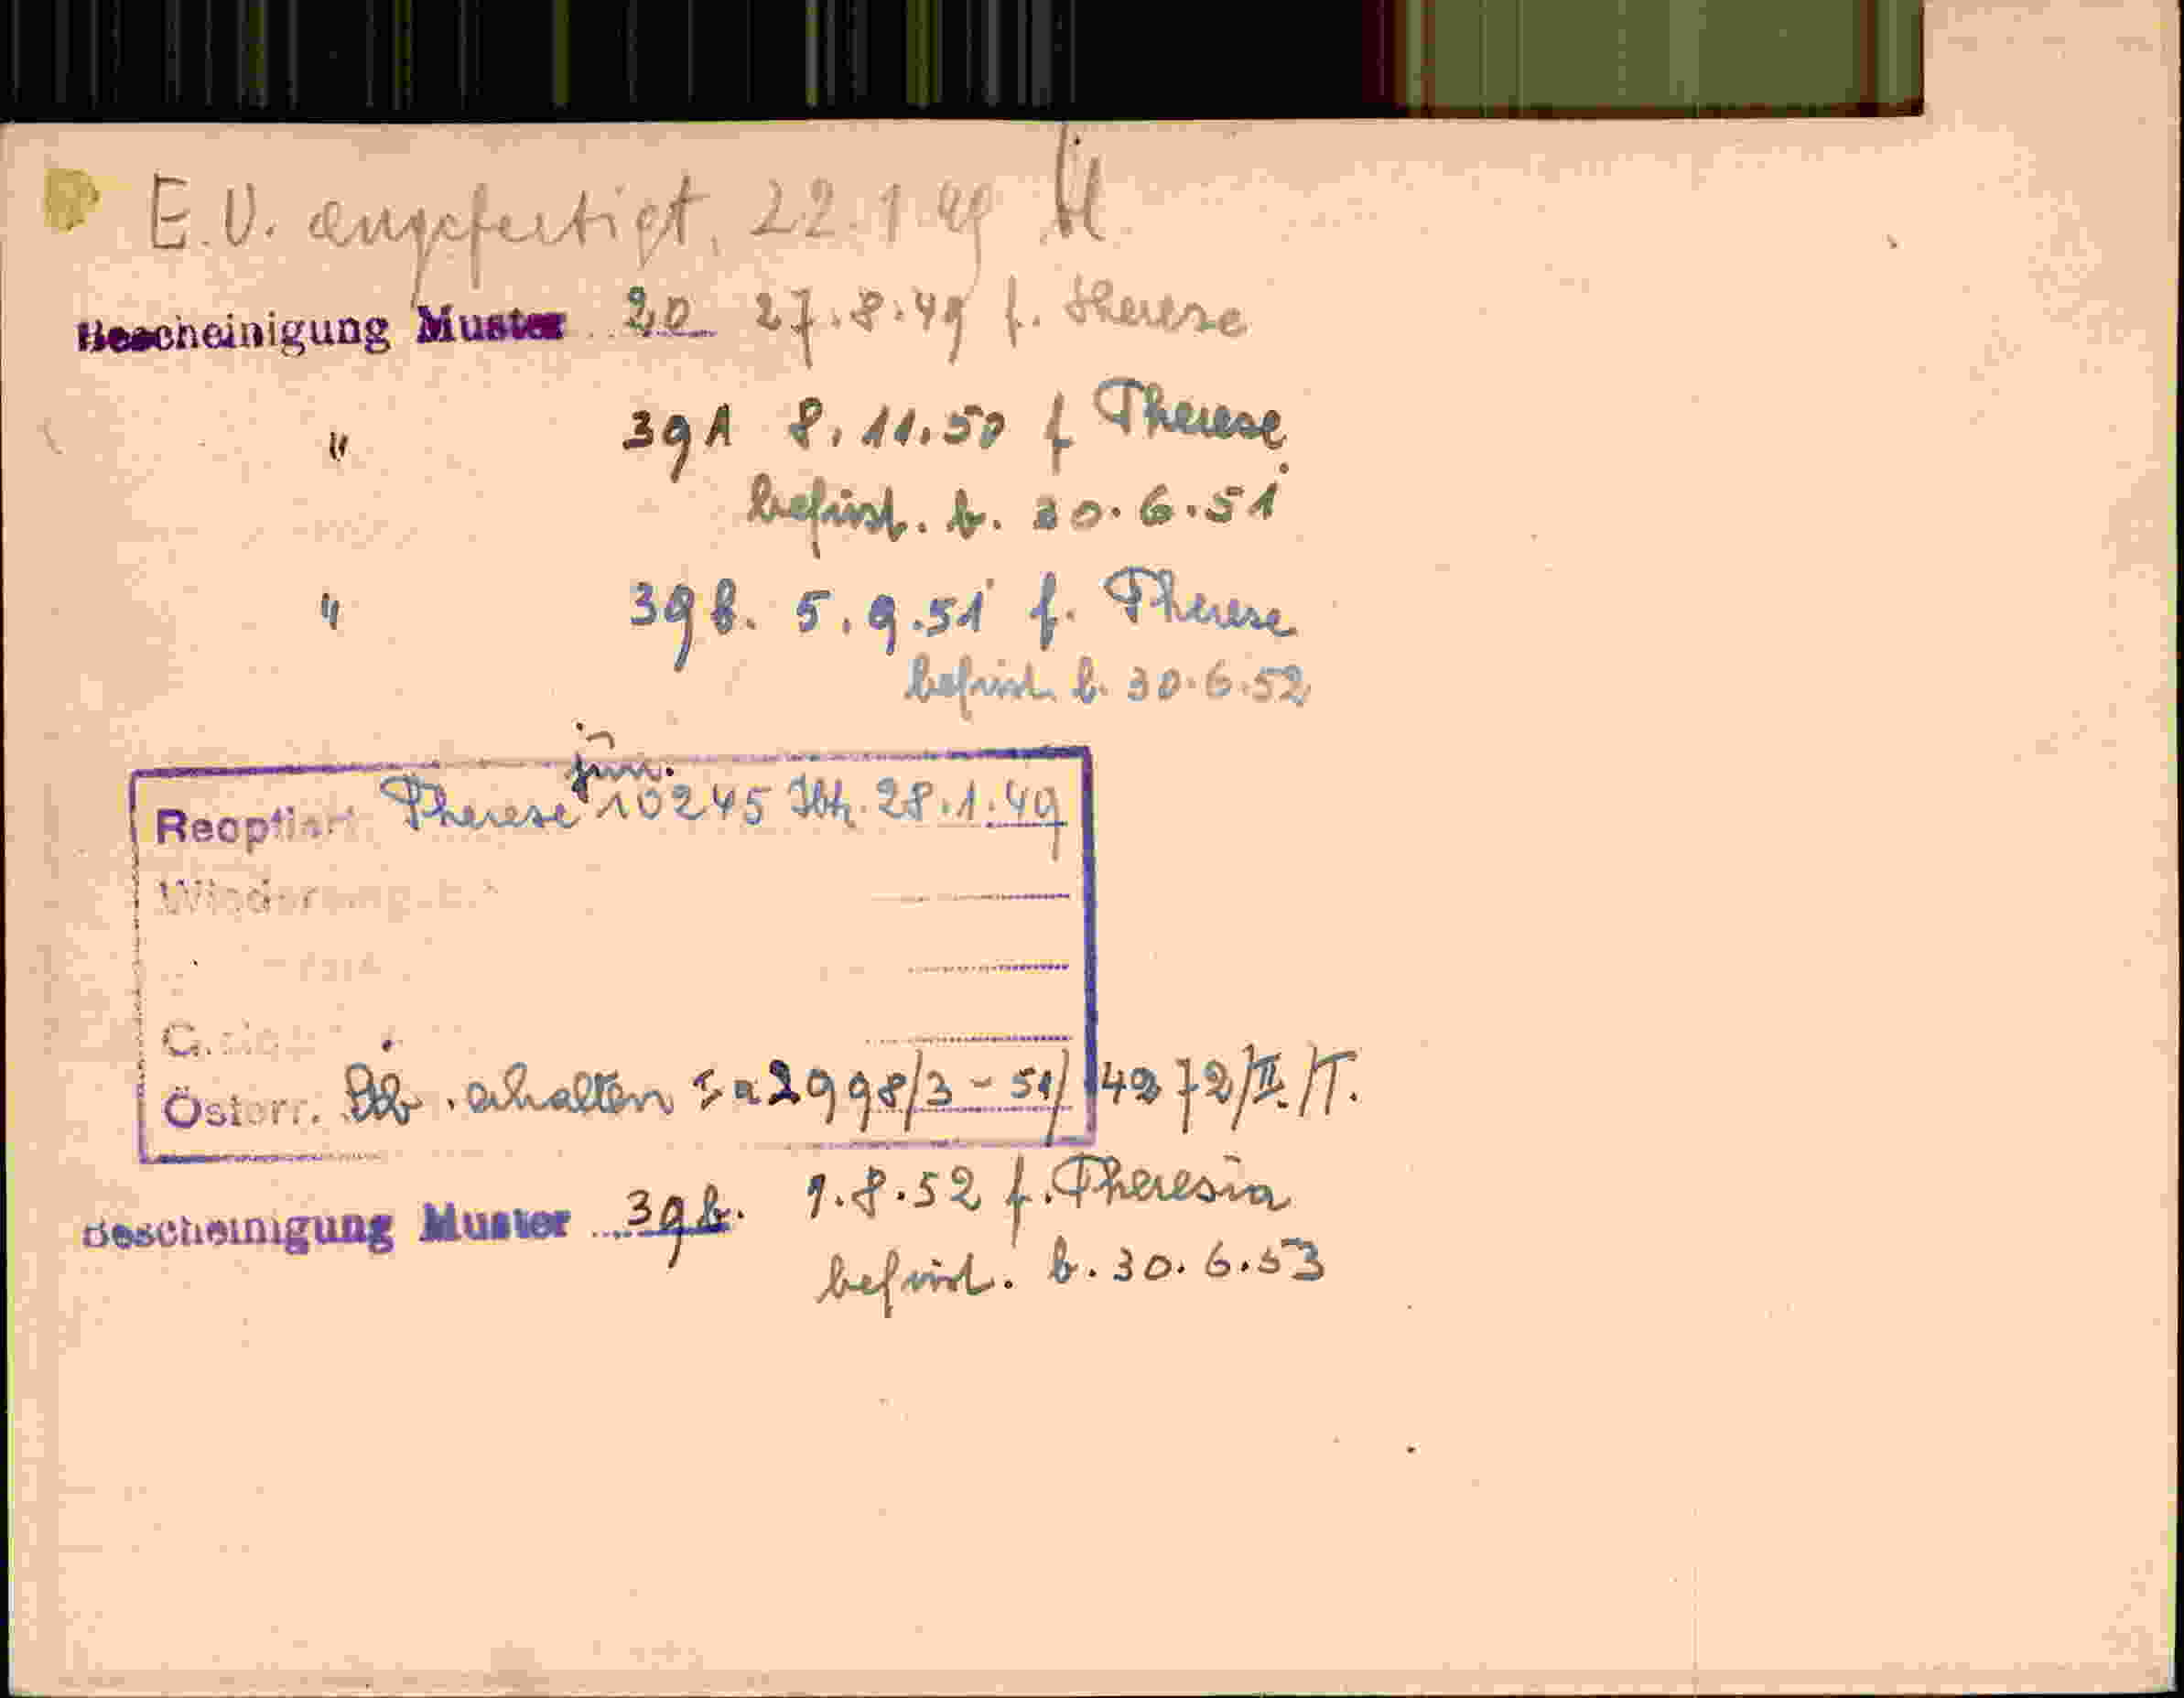 E.V. angefertigt, 22.1.49
Bescheinigung Muster 20 27.8.49 f. Therese
" 39A 8.11.50 f Therese
befrist. b. 30.6.51
" 39b. 5.9.51 f. Therese
befrist. b. 30.6.52
jun.
Reoptiert Therese 10245 Ibk. 28.1.49
Österr. erhalten Ia 2998/3-51/ 4272/II./T.
Bescheinigung Muster 39b. 1.8.52 f. Theresia
befrist. b. 30.6.53